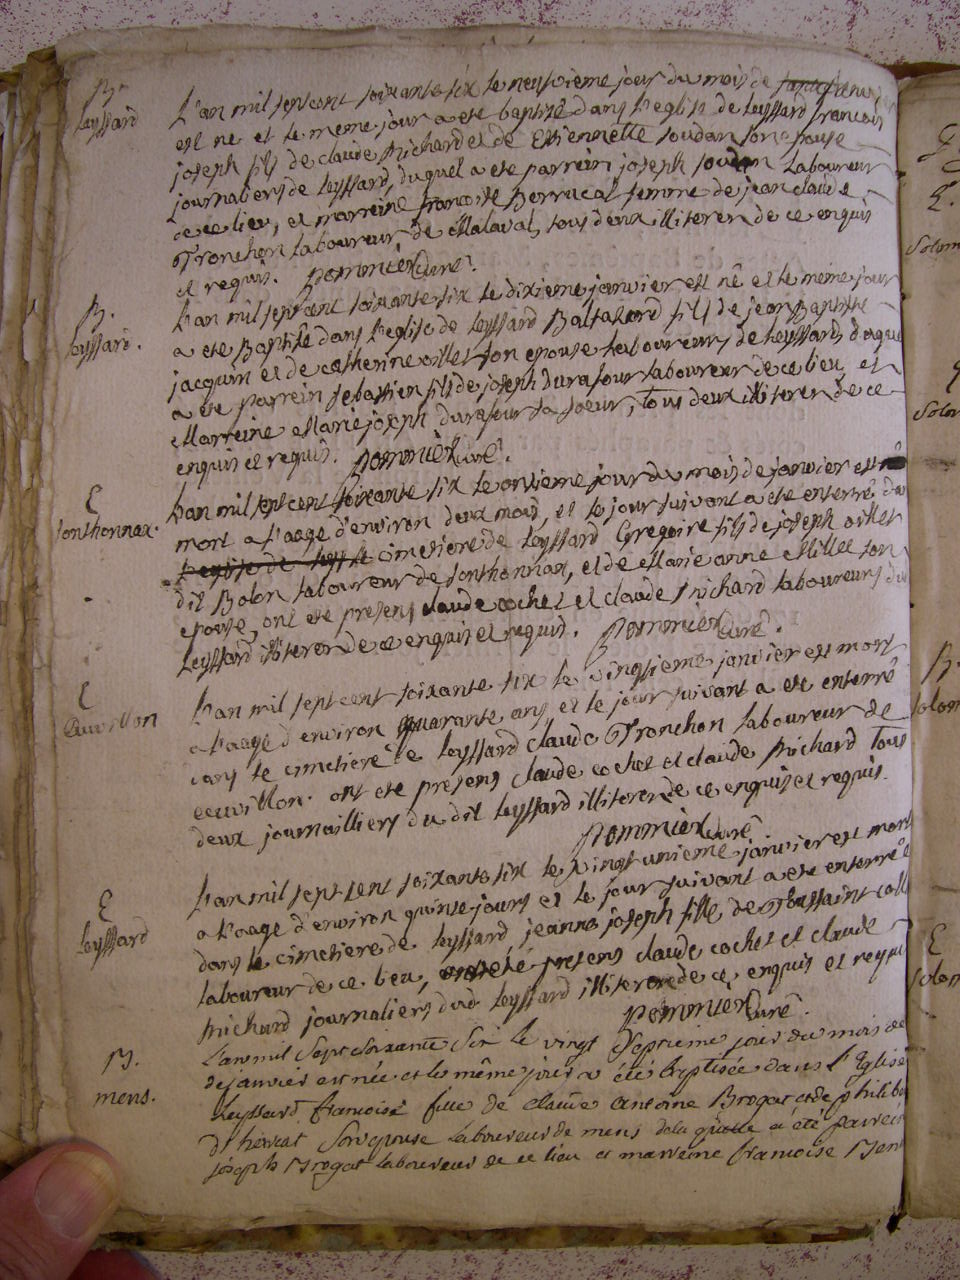 B.
Leyssard
L'an mil sept cent soixante six le neufvieme jour du mois de
est né et le meme jour a eté baptisé dans l'eglise de Leyssard francois
joseph fils de claude Michard et de Estiennette soudan son epouse
journaliers de Leyssard, duquel a eté parrein joseph soudan Laboureur
de ce lieu, et marreine francoise Berrucal femme de jean claude
Tronchon laboureur de Malaval, tous deux illiteres de ce enquis
et requis. Pommier curé.
B.
Leyssard.
L'an mil sept cent soixante six le dixieme janvier est né et le meme jour
a eté Baptisé dans l'eglise de Leyssard Baltazard fils de jean Baptiste
jacquin et de catherine millet son epouse Laboureurs de Leyssard, duquel
a eté parrein sebastien fils de joseph durafour laboureur de ce lieu et
Marreine Marie joseph durafour sa soeur, tous deux illiteres de ce
enquis et requis. Pommier curé.
E
Sonthonnax.
L'an mil sept cent soixante six le onzieme jour du mois de janvier est
mort a l'aage d'environ deux mois, et le jour suivant a eté enterré dans
l'eglise de Leyss le cimetiere de Leyssard Gregoire fils de joseph millet
dit Bolon laboureur de Sonthonnax, et de Marie anne Millet son
epouse, ont eté presens claude cochet et claude Michard laboureurs du
Leyssard illiteres de ce enquis et requis. Pommier curé.
E
Cuvillon
L'an mil sept cent soixante six le vingtieme janvier est mort
a l'aage d'environ quarante ans et le jour suivant a eté enterré
dans le cimetiere de Leyssard claude Tronchon laboureur de
cuvillon. ont eté presens claude cochet et claude Michard tous
deux journailliers du dit Leyssard illiteres de ce enquis et requis.
Pommier curé
E
Leyssard
L'an mil sept cent soixante six le vingt unieme janvier est mort
a l'aage d'environ quinse jours et le jour suivant a eté enterrée
dans le cimetiere de Leyssard jeanne joseph fille de Toussaint
laboureur de ce lieu, ont eté presens claude cochet et claude
Michard journaliers dud Leyssard illiteres de ce enquis et requis
Pommier curé.
B.
mens.
L'an mil Sept Soixante Six le vingt Septieme jour du mois de
de janvier est née et le même jour a été baptisée dans l'Eglise
Leyssard francoise fille de claude antoine Brogat et de philiber
Son epouse Laboureur de mens de la quelle a été parrein
joseph Brogat laboureur de ce lieu et marreine francoise